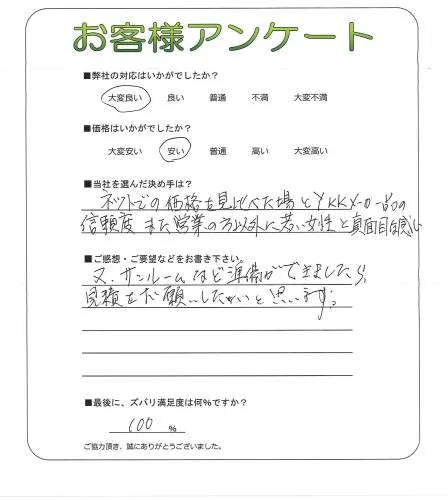 お客様アンケート
■弊社の対応はいかがでしたか?
大変良い 良い 普通 不満 大変不満
■価格はいかがでしたか?
大変安い 安い 普通 高い 大変高い
■当社を選んだ決め手は?
ネットでの価格を見比べた場とYKKメーカー品の
信頼度また営業の方以外に若い女性と真面目な感じ
■ご感想・ご要望などをお書き下さい。
又、サンルームなど準備ができましたら
見積をお願いしたいと思います。
■最後に、ズバリ満足度は何%ですか?
100 %
ご協力頂き、誠にありがとうございました。